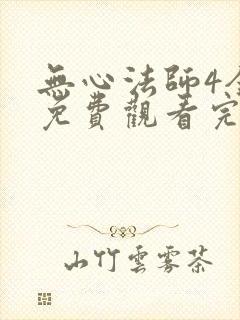 無心法師4
免費觀看完
山竹雲霧茶